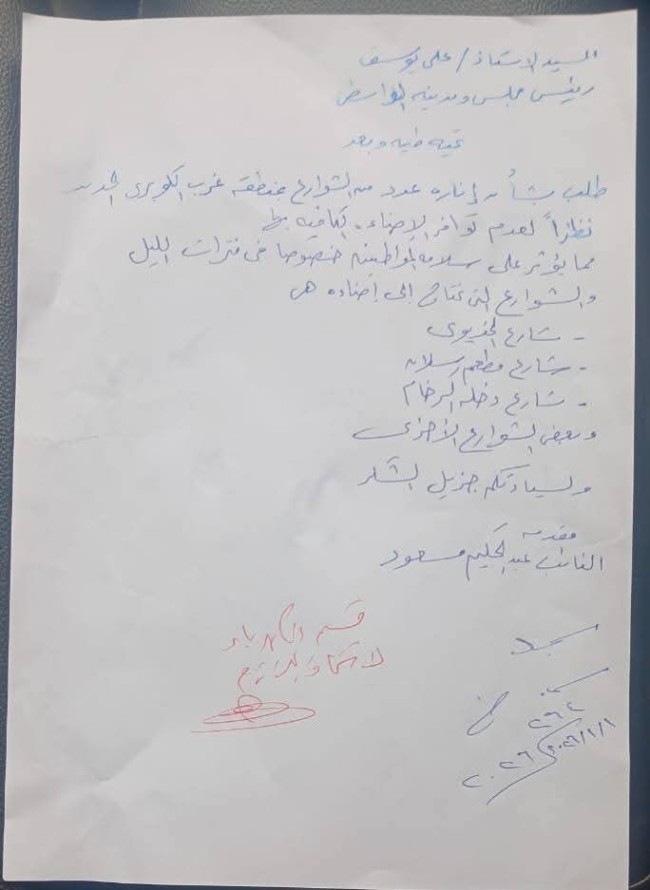 السيد الاستاذ / على يوسف
رئيس مجلس ومدينه الواسطى
تحيه طيبه وبعد
طلب بشأن إناره عدد من الشوارع بمنطقه غرب الكوبرى الجديد
نظراً لعدم توافر الإضاءه الكافيه بها
مما يؤثر على سلامه المواطنين خصوصا فى فترات الليل
والشوارع التى تحتاج إلى إضاءه هى
- شارع الخديوى
- شارع مطعم رسلان
- شارع دخله الرخام
وبعض الشوارع الأخرى
ولسيادتكم جزيل الشكر
مقدمه
النائب عبدالحكيم مسعود
قسم الكهرباء
لاتخاذ اللازم
٢٦٢
٢٠٢٦/١/١
٢٠٢٦